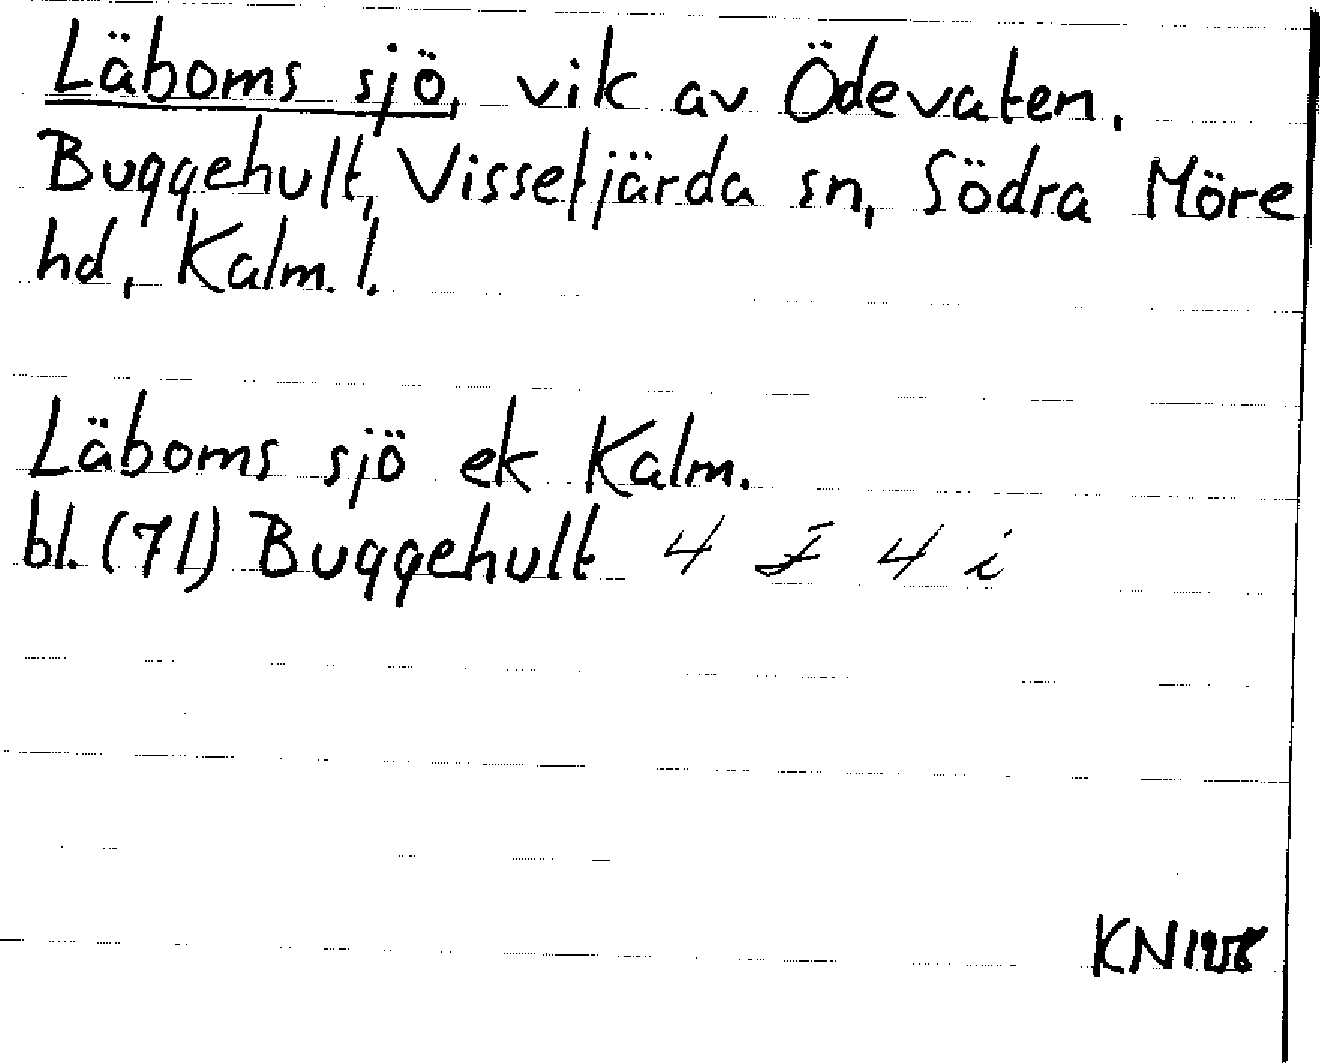 Läboms sjö, vik av Ödevaten.
Buggehult, Vissefjärda sn, Södra Möre
hd, Kalm. l.
Läboms sjö ek Kalm.
bl. (71) Buggehult 4 F 4 i
KN